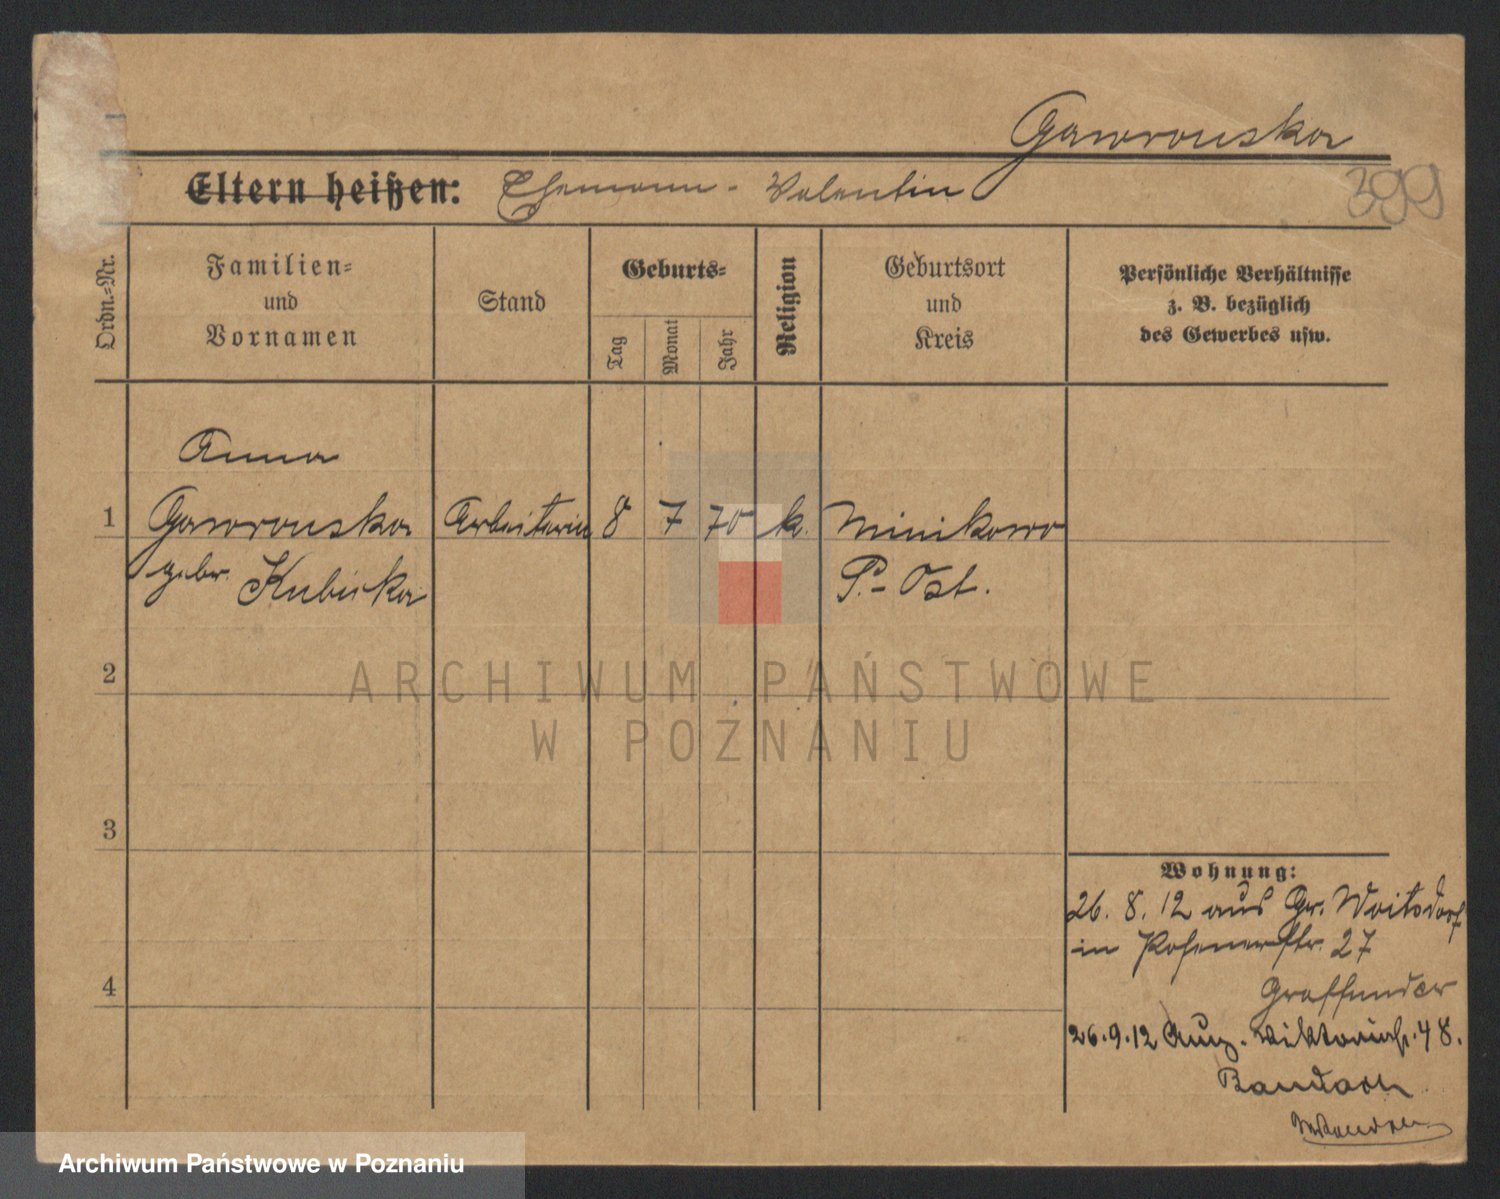 Gawronska
Eltern heißen: Ehemann - Valentin
399
Ordn.-Nr.
Familien-
und
Vornamen
Stand
Geburts-
Tag
Monat
Jahr
Religion
Geburtsort
und
Kreis
Persönliche Verhältnisse
z. B. bezüglich
des Gewerbes usw.
Anna
1 Gawronska Arbeiterin 8 7 70 k. Minikowo
gebr. Kubicka P.-Ost.
2
ARCHIWUM PAŃSTWOWE
W POZNANIU
3
4
Wohnung:
26. 8. 12 aus Gr. Woitsdorf
in Posenerstr. 27
26.9.12 Ausz. Viktoriastr. 48.
Archiwum Państwowe w Poznaniu